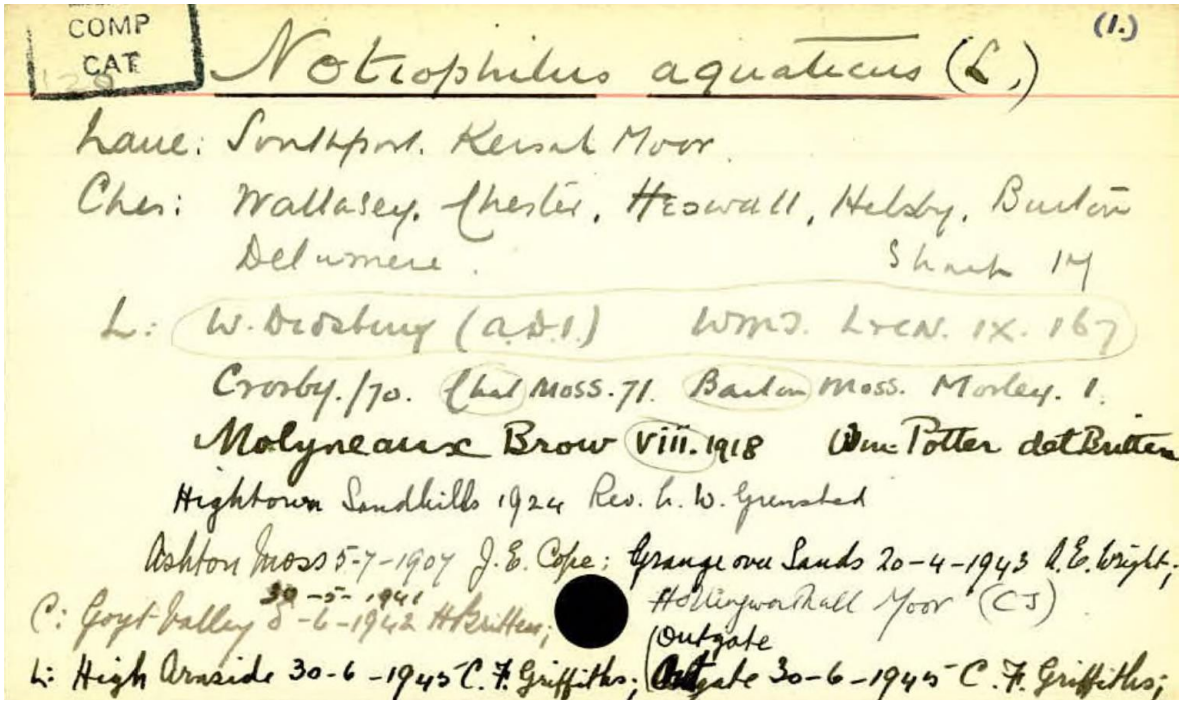 COMP
CAT
(1.)
Notiophilus aquaticus (L.)
Lanc: Southport. Kersal Moor.
Ches: Wallasey, Chester, Heswall, Helsby, Burton
Delamere. Sharp 14
L: W. Didsbury (a.D.I.) L&CN. IX. 167
Crosby./70. Chat Moss. 71. Barton Moss. Morley. 1.
Molyneaux Brow viii.1918 Wm. Potter det Britten
Hightown Sandhills 1924 Rev. L. W. Grensted
Ashton Moss 5-7-1907 J. E. Cope; Grange over Sands 20-4-1943 A. E. Wright;
30-5-1941 Hollingworthall Moor (CJ)
C: Goyt-Valley -6-1942 HBritten;
Outgate
L: High Arnside 30-6-1945 C. F. Griffiths; 30-6-1945 C. F. Griffiths;